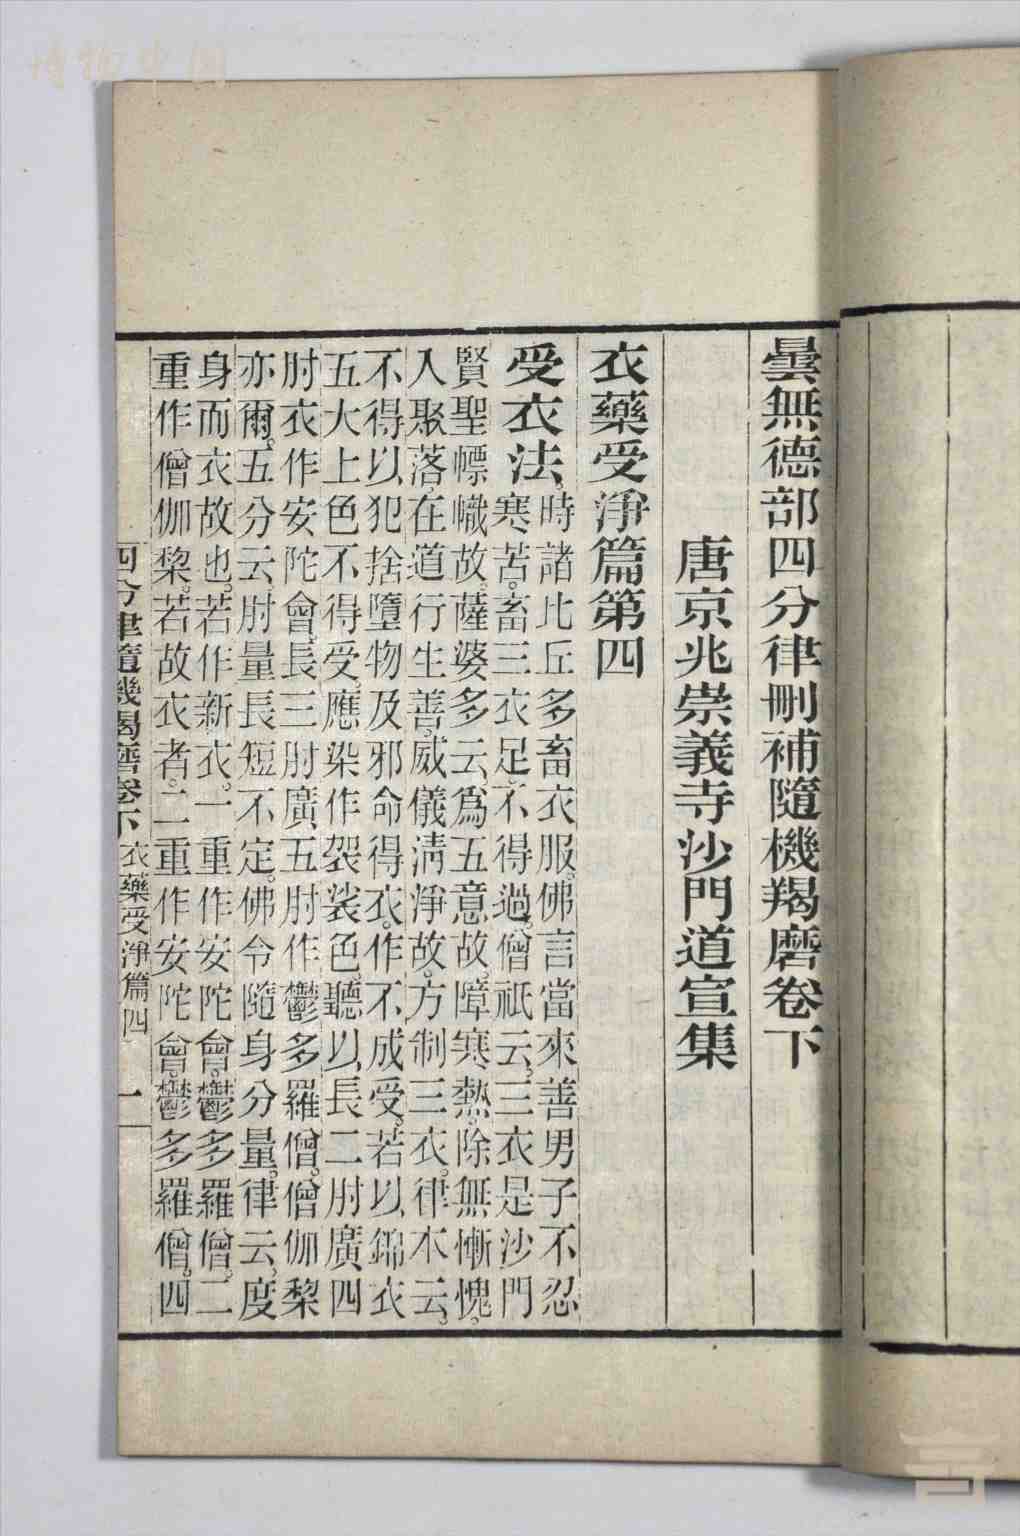 博物中国
曇無德部四分律刪補隨機羯磨卷下
唐京兆崇義寺沙門道宣集
衣藥受淨篇第四
受衣法。時諸比丘多畜衣服。佛言當來善男子不忍
寒苦。畜三衣足。不得過。僧祇云。三衣是沙門
賢聖幖幟故。薩婆多云。爲五意故。障寒熱。除無慚愧。
入聚落。在道行生善。威儀淸淨故。方制三衣。律本云。
不得以犯捨墮物及邪命得衣。作不成受。若以錦衣
五大上色不得受。應染作袈裟色。聽以長二肘廣四
肘衣作安陀會。長三肘廣五肘作鬱多羅僧。僧伽棃
亦爾。五分云。肘量長短不定。佛令隨身分量。律云。度
身而衣故也。若作新衣。一重作安陀會。鬱多羅僧。二
重作僧伽棃。若故衣者。二重作安陀會。鬱多羅僧。四
四分律隨機羯磨卷下 衣藥受淨篇四 一